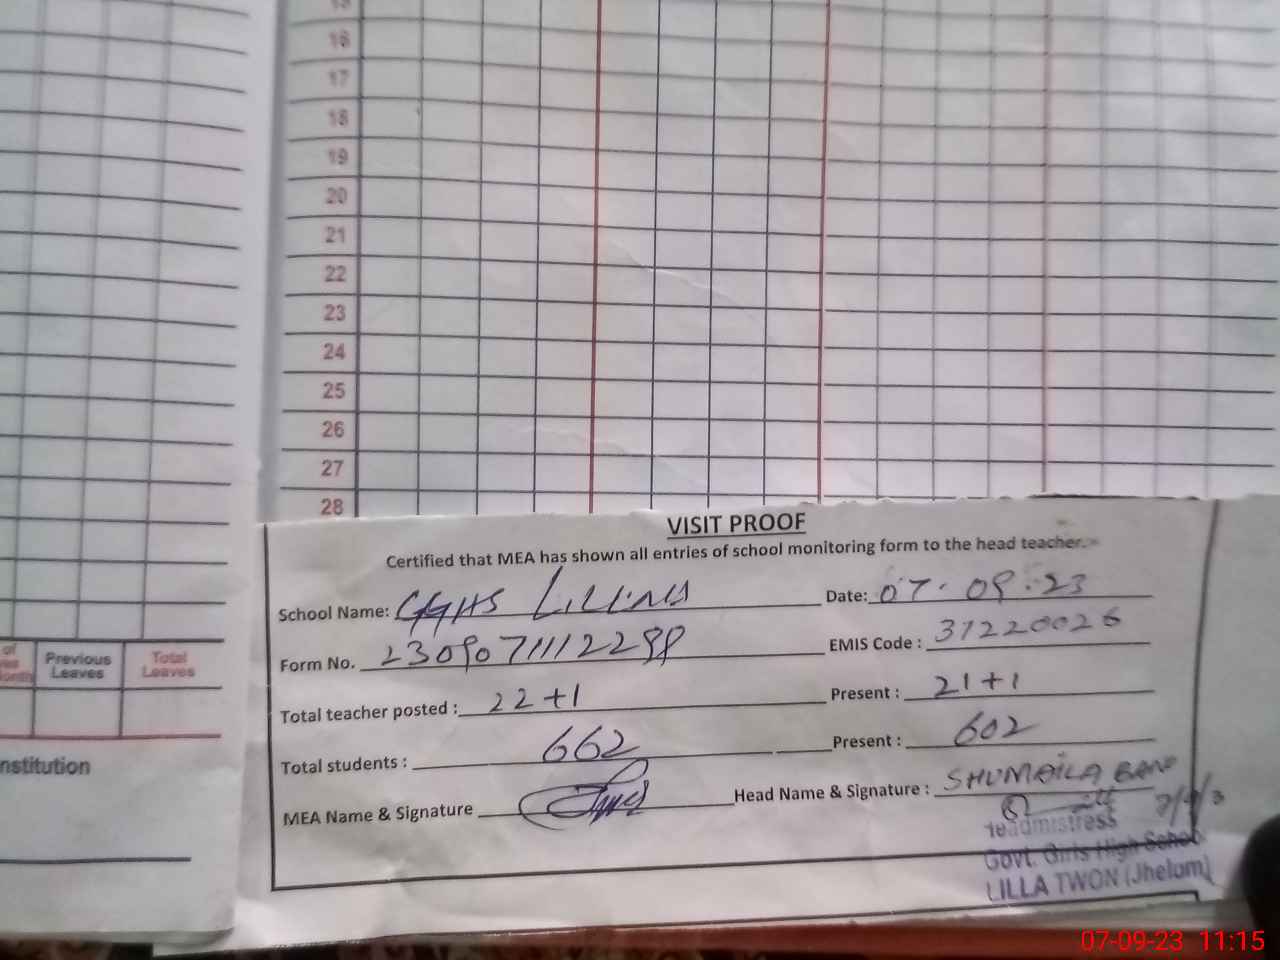 15
16
17
18
19
20
21
22
23
24
25
26
27
28
of
Previous Leaves
Total Leaves
nstitution
VISIT PROOF
Certified that MEA has shown all entries of school monitoring form to the head teacher.
School Name: GGHS Date: 07.09.23
Form No. 2309071112298 EMIS Code : 31220026
Total teacher posted : 22+1 Present : 21+1
Total students : 662 Present : 602
MEA Name & Signature Head Name & Signature : SHUMAILA BANO
Headmistress
Govt. Girls High School
LILLA TWON (Jhelum)
07-09-23 11:15